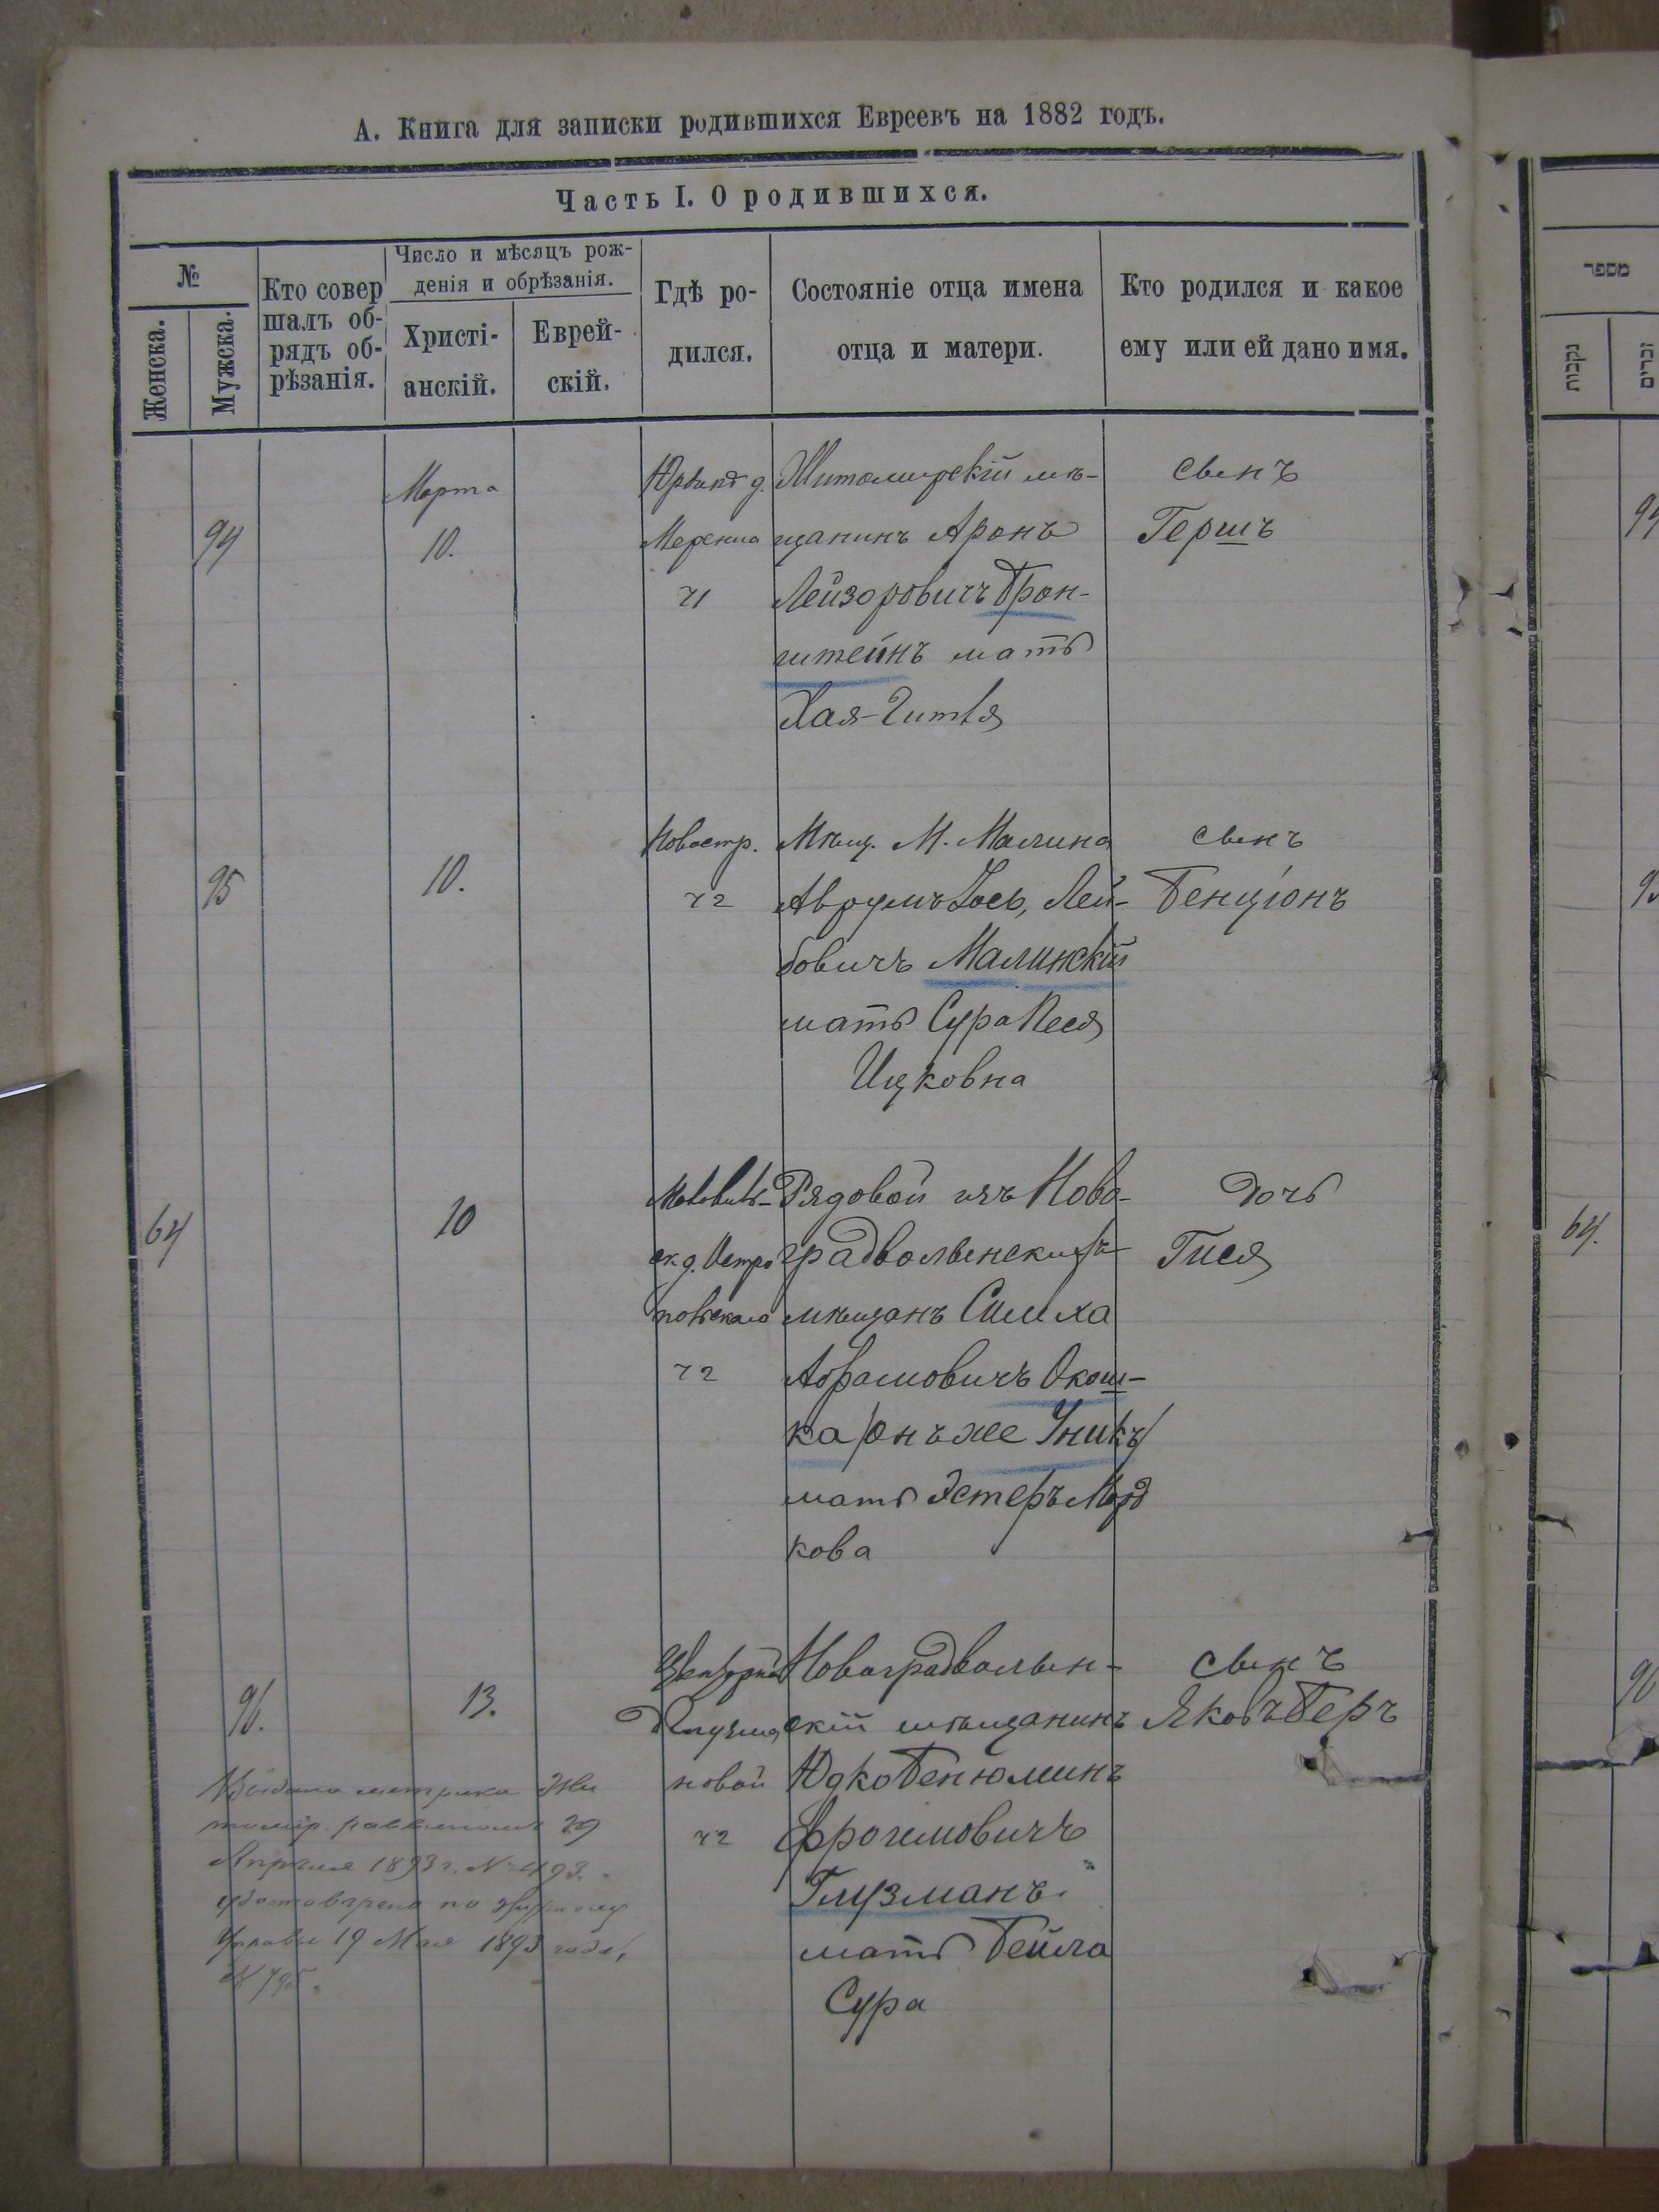 А. Книга для записки родившихся Евреевъ на 1882 годъ.
Часть I. О родившихся.
№
Женска.
Мужска.
Кто совер
шалъ об-
рядъ об-
рѣзанія.
Число и мѣсяцъ рож-
денія и обрѣзанія.
Христі-
анскій.
Еврей-
скій.
Гдѣ ро-
дился.
Состояніе отца имена
отца и матери.
Кто родился и какое
ему или ей дано имя.
94
Марта
10.
д.
ч1
Житомирскій мѣ-
щанинъ Аронъ
Лейзоровичъ Брон-
штейнъ мать
Хая-Гитля
сынъ
Гершъ
95
10.
Новостр.
ч2
Мѣщ. М. Малина
Аврумъ Іось, Лей-
бовичъ Малинскій
мать Сура Песя
Ицковна
сынъ
Бенціонъ
64
10
ск. д. Остро
повскаго
ч2
Рядовой изъ Ново-
градволынскихъ
мѣщанъ Симха
Абрамовичъ Окош-
ка /онъ же Уникъ/
мать Эстеръ Морд
кова
дочь
Гися
96.
13.
новой
ч2
Новоградволын-
скій мѣщанинъ
Юдко Бенюминъ
Фроимовичъ
Глузманъ
мать Бейла
Сура
сынъ
Яковъ Беръ
Выдана метрика Жи
томір. раввиномъ 29
Апрѣля 1893 г. № 493.
удостовѣрено по
Управы 19 Мая 1893 года,
№ 795.
מספר
נקבות
זכרים
94
95
64.
96